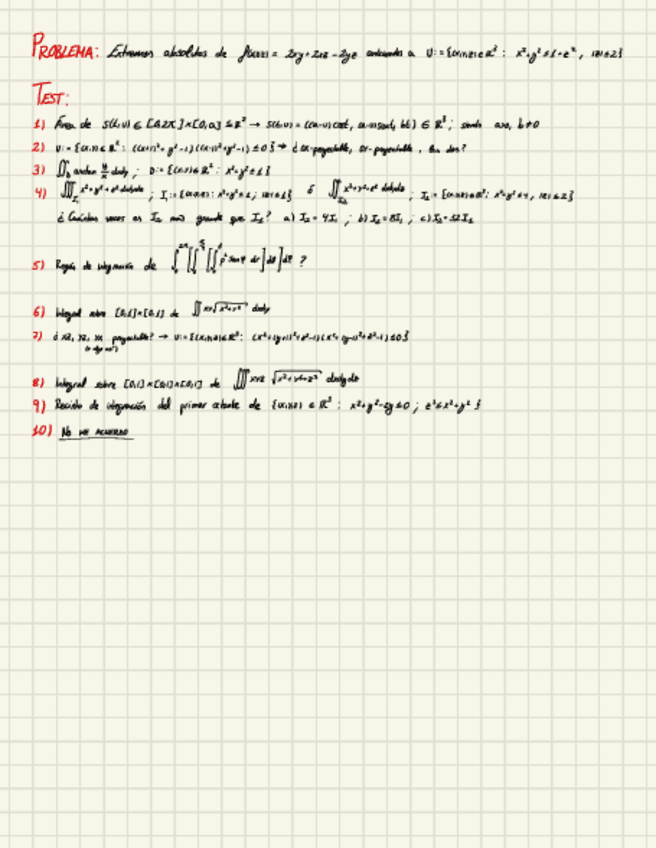 PROBLEMA: Extremos absolutos de f(x,y,z) = 2xy + 2xz - 2yz U := {(x,y,z) ∈ R³ : x² + y² ≤ 1 + z², |z| ≤ 2}
TEST:
1) Área de S(t,u) ∈ [0,2π] × [0,a] ⊆ R² → S(t,u) = ((a-u)cos t, (a-u)sen t, bt) ∈ R³; siendo a>0, b≠0
2) U := {(x,y) ∈ R² : ((x+1)² + y² - 1)((x-1)² + y² - 1) ≤ 0} → ¿ -proyectable, -proyectable, las dos?
3) ∬_D arctan y/x dxdy ; D := {(x,y) ∈ R² : x² + y² ≤ 1}
4) ∭_{I₁} x² + y² + z² dxdydz ; I₁ := {(x,y,z) : x² + y² ≤ 1 ; |z| ≤ 1} ó ∭_{I₂} x² + y² + z² dxdydz ; I₂ := {(x,y,z) ∈ R³ : x² + y² ≤ 4, |z| ≤ 2}
¿Cuántas veces es I₂ más grande que I₁? a) I₂ = 4I₁ ; b) I₂ = 8I₁ ; c) I₂ = 32I₁
5) Región de integración de ?
6) Integral sobre [0,1]×[0,1] de ∬ xy√(x²+y²) dxdy
7) ¿ proyectable? → U := {(x,y,z) ∈ R³ : (x²+(y+1)²+z²-1)(x²+(y-1)²+z²-1) ≤ 0}
8) Integral sobre [0,1]×[0,1]×[0,1] de ∭ xyz √(x²+y²+z²) dxdydz
9) Recinto de integración del primer octante de {(x,y,z) ∈ R³ : x² + y² - 2y ≤ 0 ; z² ≤ x² + y²}
10) NO ME ACUERDO